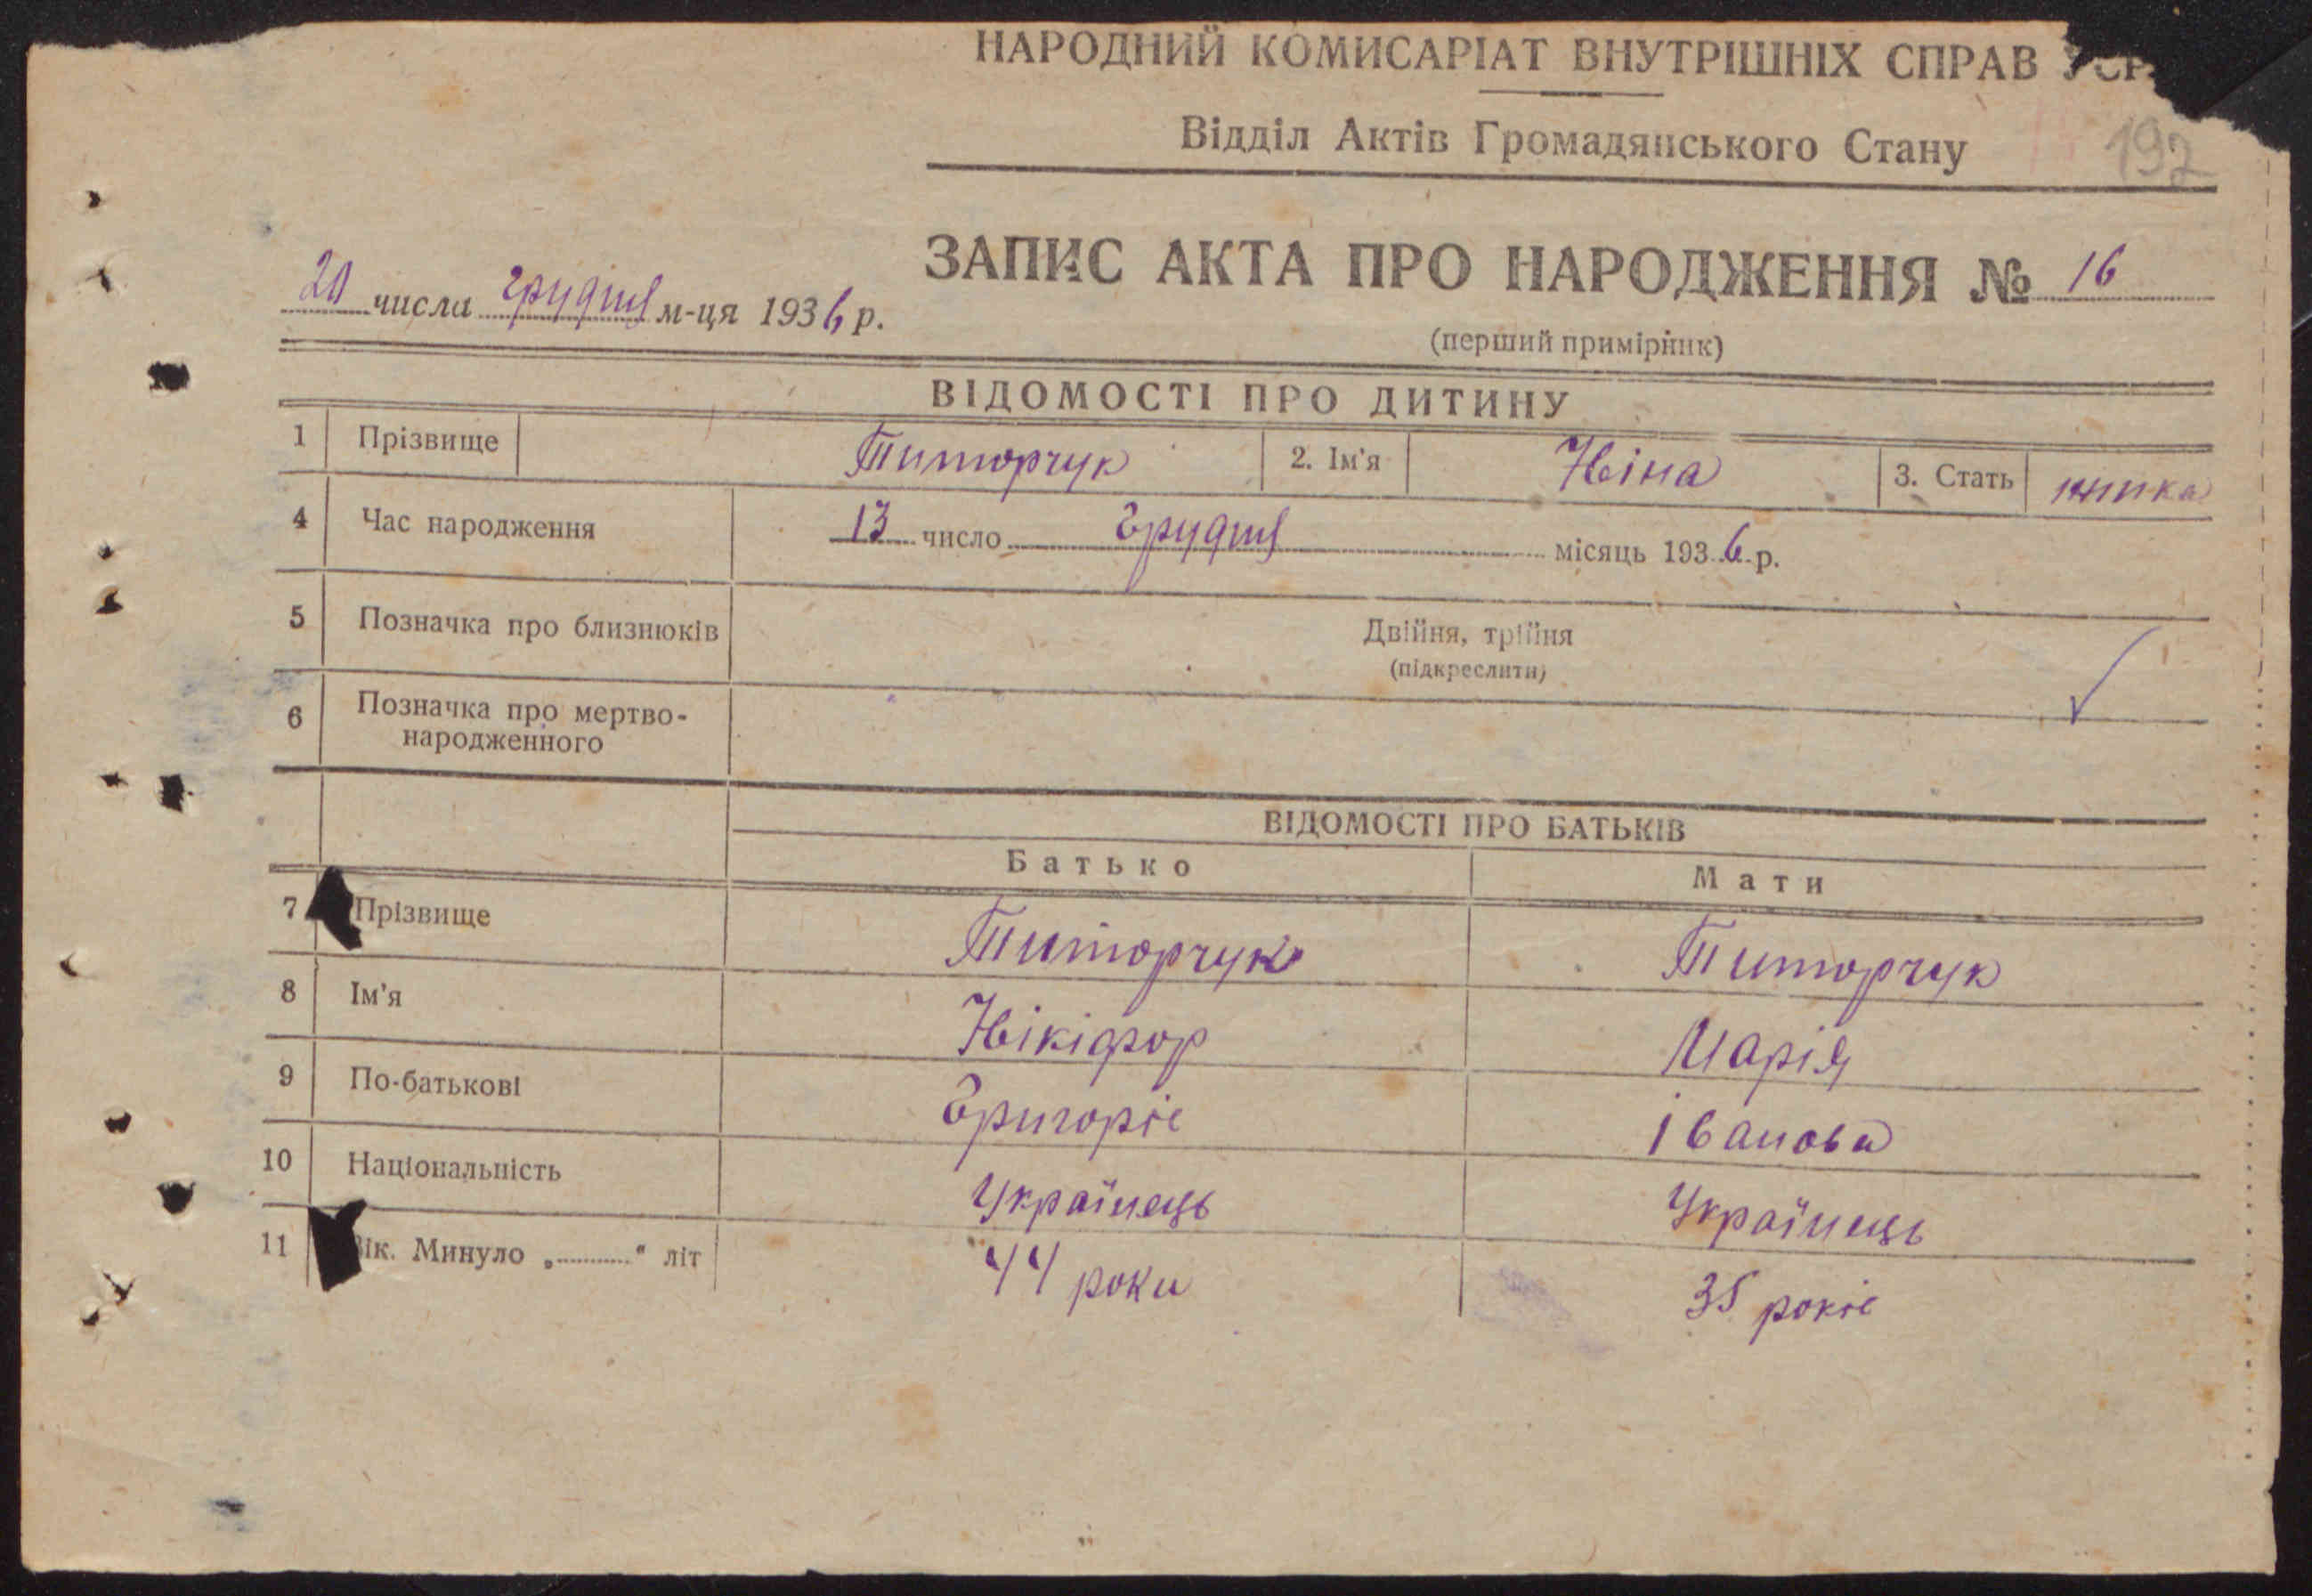 НАРОДНИЙ КОМИСАРІАТ ВНУТРІШНІХ СПРАВ УСР
Відділ Актів Громадянського Стану
192
ЗАПИС АКТА ПРО НАРОДЖЕННЯ № 16
20 числа грудня м-ця 1936 р.
(перший примірник)
ВІДОМОСТІ ПРО ДИТИНУ
1 Прізвище Титорчук 2. Ім'я Ніна 3. Стать жінка
4 Час народження 13 число грудня місяць 1936 р.
5 Позначка про близнюків Двійня, трійня
(підкреслити)
6 Позначка про мертво-
народженного
ВІДОМОСТІ ПРО БАТЬКІВ
Батько Мати
7 Прізвище Титорчук Титорчук
8 Ім'я Нікіфор Марія
9 По-батькові Григоріє Іванова
10 Національність Українець Українець
11 Вік. Минуло „ “ літ 44 роки 35 років